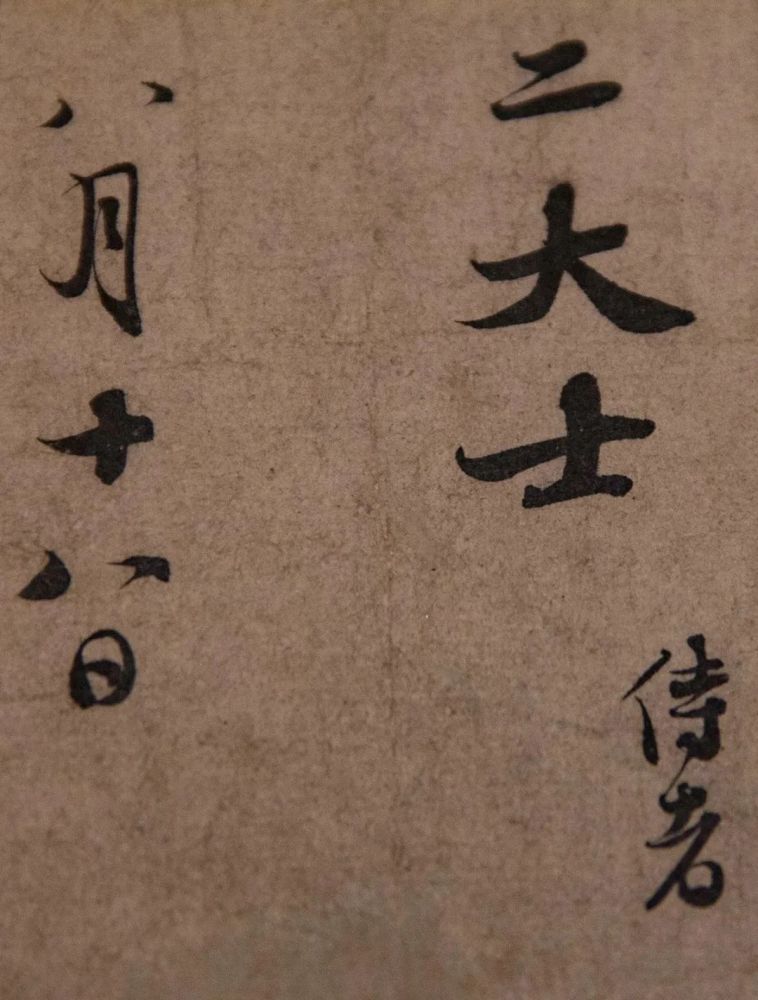 二大士
侍者
八月十八日